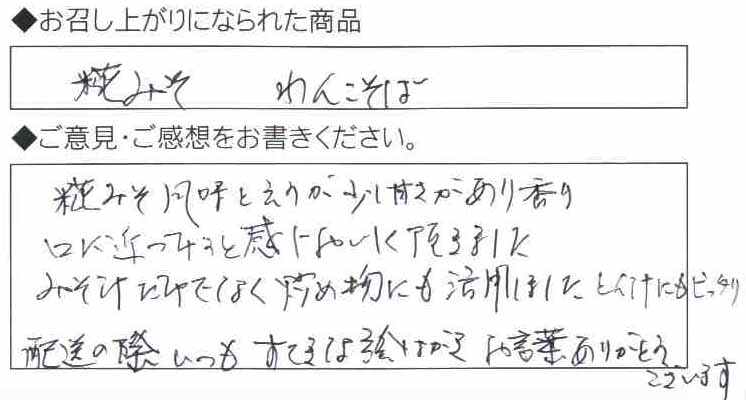 ◆お召し上がりになられた商品
糀みそ わんこそば
◆ご意見・ご感想をお書きください。
糀みそ風味と 香り
口に近づ と感じおいしく頂きました
みそ汁だけでなく炒め物にも活用しました とん汁にもピッタリ
配送の際いつもすてきな絵はがき お言葉ありがとう
ございます